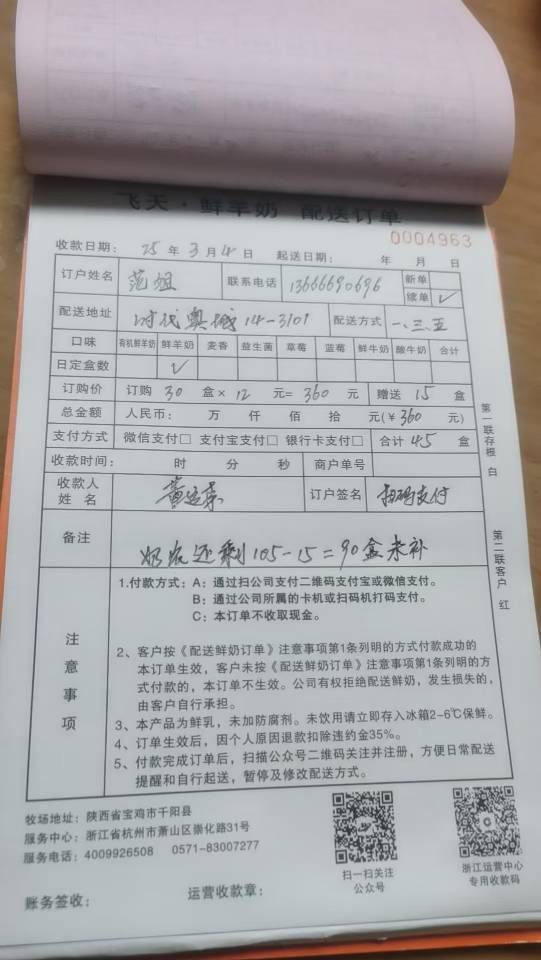 飞天·鲜羊奶 配送订单
0004963
收款日期： 25 年 3 月 4 日 起送日期： 年 月 日
订户姓名 范姐 联系电话 13666690696 新单
续单 ✓
配送地址 时代奥城14-3101 配送方式 一、三、五
口味 有机鲜羊奶 鲜羊奶 麦香 益生菌 草莓 蓝莓 鲜牛奶 酸牛奶 合计
日定盒数 ✓
订购价 订购 30 盒× 12 元= 360 元 赠送 15 盒
总金额 人民币： 万 仟 佰 拾 元(￥360 元)
支付方式 微信支付□ 支付宝支付□ 银行卡支付□ 合计 45 盒
收款时间： 时 分 秒 商户单号
收款人
姓 名 黄 订户签名 扫码支付
备注 还剩105-15=90盒未补
第一联存根 白
第二联客户 红
注意事项
1.付款方式：A：通过扫公司支付二维码支付宝或微信支付。
B：通过公司所属的卡机或扫码机打码支付。
C：本订单不收取现金。
2、客户按《配送鲜奶订单》注意事项第1条列明的方式付款成功的
本订单生效，客户未按《配送鲜奶订单》注意事项第1条列明的方
式付款的，本订单不生效。公司有权拒绝配送鲜奶，发生损失的，
由客户自行承担。
3、本产品为鲜乳，未加防腐剂。未饮用请立即存入冰箱2-6℃保鲜。
4、订单生效后，因个人原因退款扣除违约金35%。
5、付款完成订单后，扫描公众号二维码关注并注册，方便日常配送
提醒和自行起送，暂停及修改配送方式。
牧场地址：陕西省宝鸡市千阳县
服务中心：浙江省杭州市萧山区崇化路31号
服务电话：4009926508 0571-83007277
扫一扫关注
公众号
浙江运营中心
专用收款码
账务签收： 运营收款章：